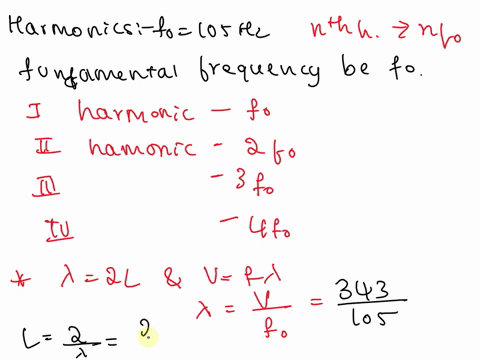 Harmonics:- f₀ = 105 Hz nᵗʰ h. → nf₀
fundamental frequency be f₀.
I harmonic - f₀
II hamonic - 2f₀
III - 3f₀
IV - 4f₀
* λ = 2L & V = fλ
λ = V/f₀ = 343/105
L = 2/λ = ?